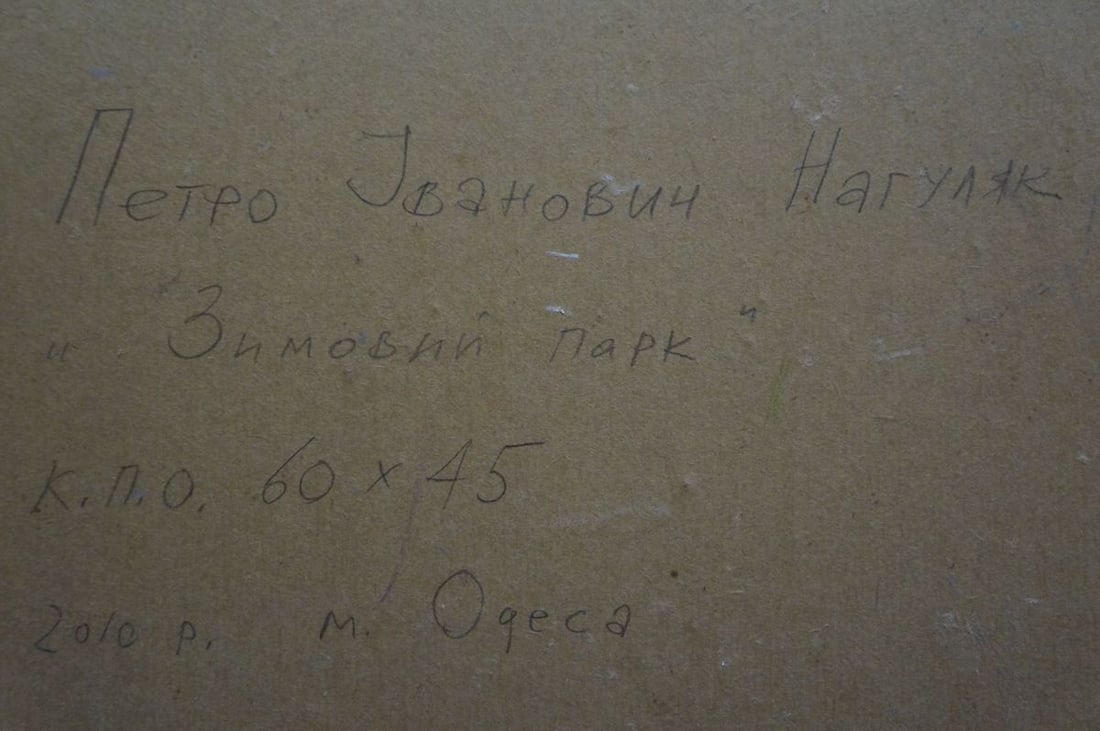 Петро Іванович Нагуляк
" Зимовий парк "
К.П.О. 60 х 45
2010 р. м. Одеса